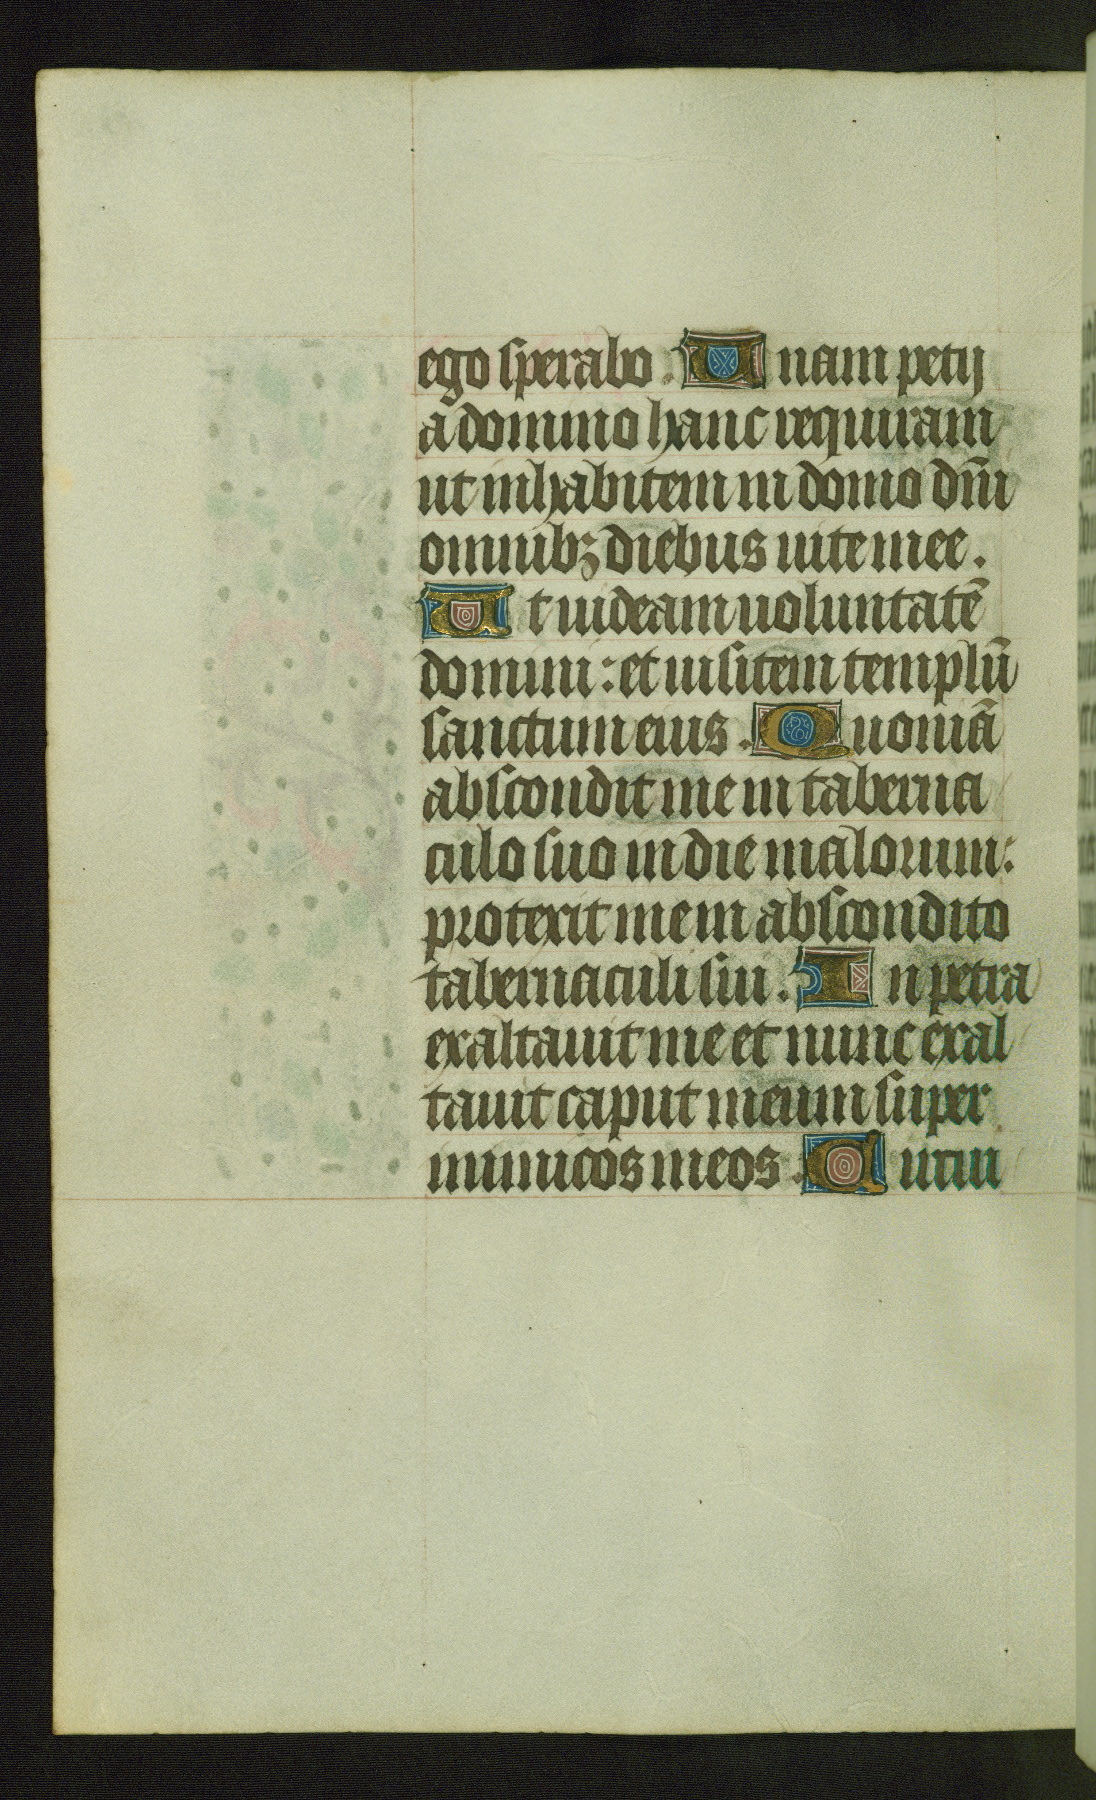 ego sperabo . Unam petij
a domino hanc requiram
ut inhabitem in domo dn̄i
omnibꝫ diebus uite mee .
Ut uideam uoluntatē
domini : et uisitem templū
sanctum eius . Quoniā
abscondit me in taberna
culo suo in die malorum :
protexit me in abscondito
tabernaculi sui . In petra
exaltauit me et nunc exal
tauit caput meum super
inimicos meos . Circui